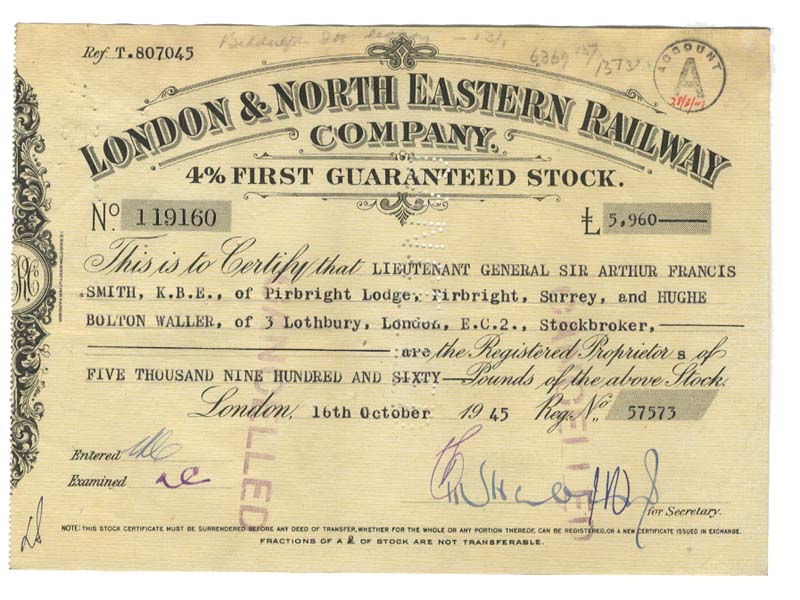 Ref. T.807045
6369 157
ACCOUNT
A
LONDON & NORTH EASTERN RAILWAY
COMPANY.
4% FIRST GUARANTEED STOCK.
No 119160
£ 5,960
This is to Certify that LIEUTENANT GENERAL SIR ARTHUR FRANCIS
SMITH, K.B.E., of Pirbright Lodge, Pirbright, Surrey, and HUGHE
BOLTON WALLER, of 3 Lothbury, London, E.C.2., Stockbroker,
are the Registered Proprietor s of
FIVE THOUSAND NINE HUNDRED AND SIXTY Pounds of the above Stock.
London, 16th October 1945 Reg. No. 57573
CANCELLED
CANCELLED
Entered
Examined
for Secretary.
NOTE: THIS STOCK CERTIFICATE MUST BE SURRENDERED BEFORE ANY DEED OF TRANSFER, WHETHER FOR THE WHOLE OR ANY PORTION THEREOF, CAN BE REGISTERED, OR A NEW CERTIFICATE ISSUED IN EXCHANGE.
FRACTIONS OF A £ OF STOCK ARE NOT TRANSFERABLE.